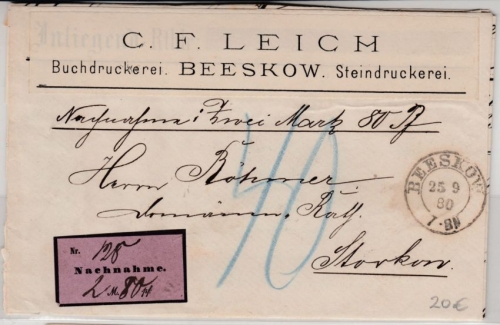 C. F. LEICH
Buchdruckerei. BEESKOW. Steindruckerei.
Nachnahme: Zwei Mark 80 Pf
40
Herrn Böhmer.
Domänen-Rath.
Storkow.
BEESKOW
25 9
80
7-8N
Nr. 128
Nachnahme.
2 M. 80 Pf
20€